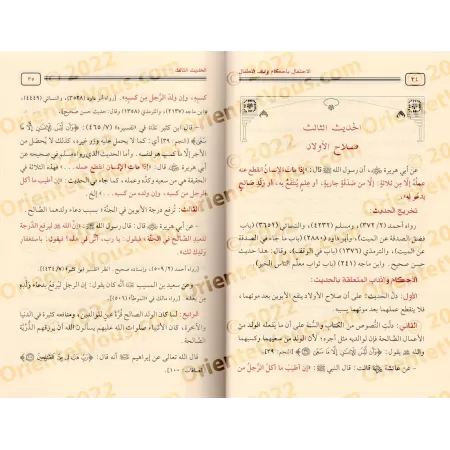 ٣٤
الاحتفال بأحكام وآداب الأطفال
الحديث الثالث
صلاح الأولاد
عن أبي هريرة ﷺ، أن رسول الله ﷺ قال: «إذا مات الإنسان انقطع عنه
عمله إلا من ثلاثة: إلا من صدقة جارية، أو علم ينتفع به، أو ولد صالح
يدعو له».
تخريج الحديث:
رواه أحمد (٣٧٢/٢)، ومسلم (٤٢٣٢)، والنسائي (٣٦٥٢) (باب
فضل الصدقة عن الميت)، وأبو داود (٢٨٨٠) (باب ما جاء في الصدقة
عن الميت)، والترمذي (١٣٧٦) (باب في الوقف)، وقال: هذا حديث
حسن صحيح. وابن ماجه (٢٤١) (باب ثواب معلم الناس الخير)
الأحكام والآداب المتعلقة بالحديث:
الأول: دل الحديث: على أن صلاح الأولاد ينفع الأبوين بعد موتهما،
فلا ينقطع عملهما بعد موتهما بسببه.
الثاني: دلت النصوص من الكتاب والسنة على أن ما يفعله الولد من
الأعمال الصالحة فإن لوالديه مثل أجره؛ لأن الولد من سعيهما وكسبهما
والله يقول: ﴿وأن ليس للإنسان إلا ما سعى﴾ [النجم: ٣٩].
- عن عائشة قالت: قال النبي ﷺ: «إن أطيب ما أكل الرجل من
الحديث الثالث
٣٥
كسبه، وإن ولد الرجل من كسبه». (رواه أبو داود (٣٥٢٨)، والنسائي (٤٤٤٩)،
وابن ماجه (٢١٣٧)، والترمذي (١٣٥٨) وقال: حديث حسن صحيح).
- قال ابن كثير في «تفسيره» (٤٦٥/٧): ﴿وأن ليس للإنسان إلا ما
سعى﴾ [النجم: ٣٩] أي: كما لا يحمل عليه وزر غيره، كذلك لا يحصل من
الأجر إلا ما كسب هو لنفسه. وأما الحديث الذي رواه مسلم في صحيحه عن
أبي هريرة قال: «إذا مات الإنسان انقطع عمله...» فهذه الثلاثة في
الحقيقة هي من سعيه وكده وعمله، كما جاء في الحديث: «إن أطيب ما أكل
الرجل من كسبه، وإن ولده من كسبه».
الثالث: ترفع درجة الأبوين في الجنة؛ بسبب دعاء ولدهم الصالح.
- عن أبي هريرة قال: قال رسول الله ﷺ: «إن الله ليرفع الدرجة
للعبد الصالح في الجنة، فيقول: يا رب، أنى لي هذه؟ فيقول: باستغفار
ولدك لك».
(رواه أحمد (٥٠٩/٢)، وإسناده صحيح. انظر: تفسير ابن كثير (٤٣٤/٧)).
- وعن سعيد بن المسيب أنه كان يقول: إن الرجل ليرفع بدعاء ولده
(رواه مالك في «الموطأ» (٥٠٦)).
الرابع: لما كان الولد الصالح قرة عين لوالديه في الدنيا
والآخرة، كان الأنبياء صلوات الله عليهم يسألون الله أن يرزقهم الذرية
الصالحة.
قال الله تعالى عن إبراهيم أنه قال: ﴿رب هب لي من الصالحين﴾
[الصافات: ١٠٠].
Orientetvous.com © 2022